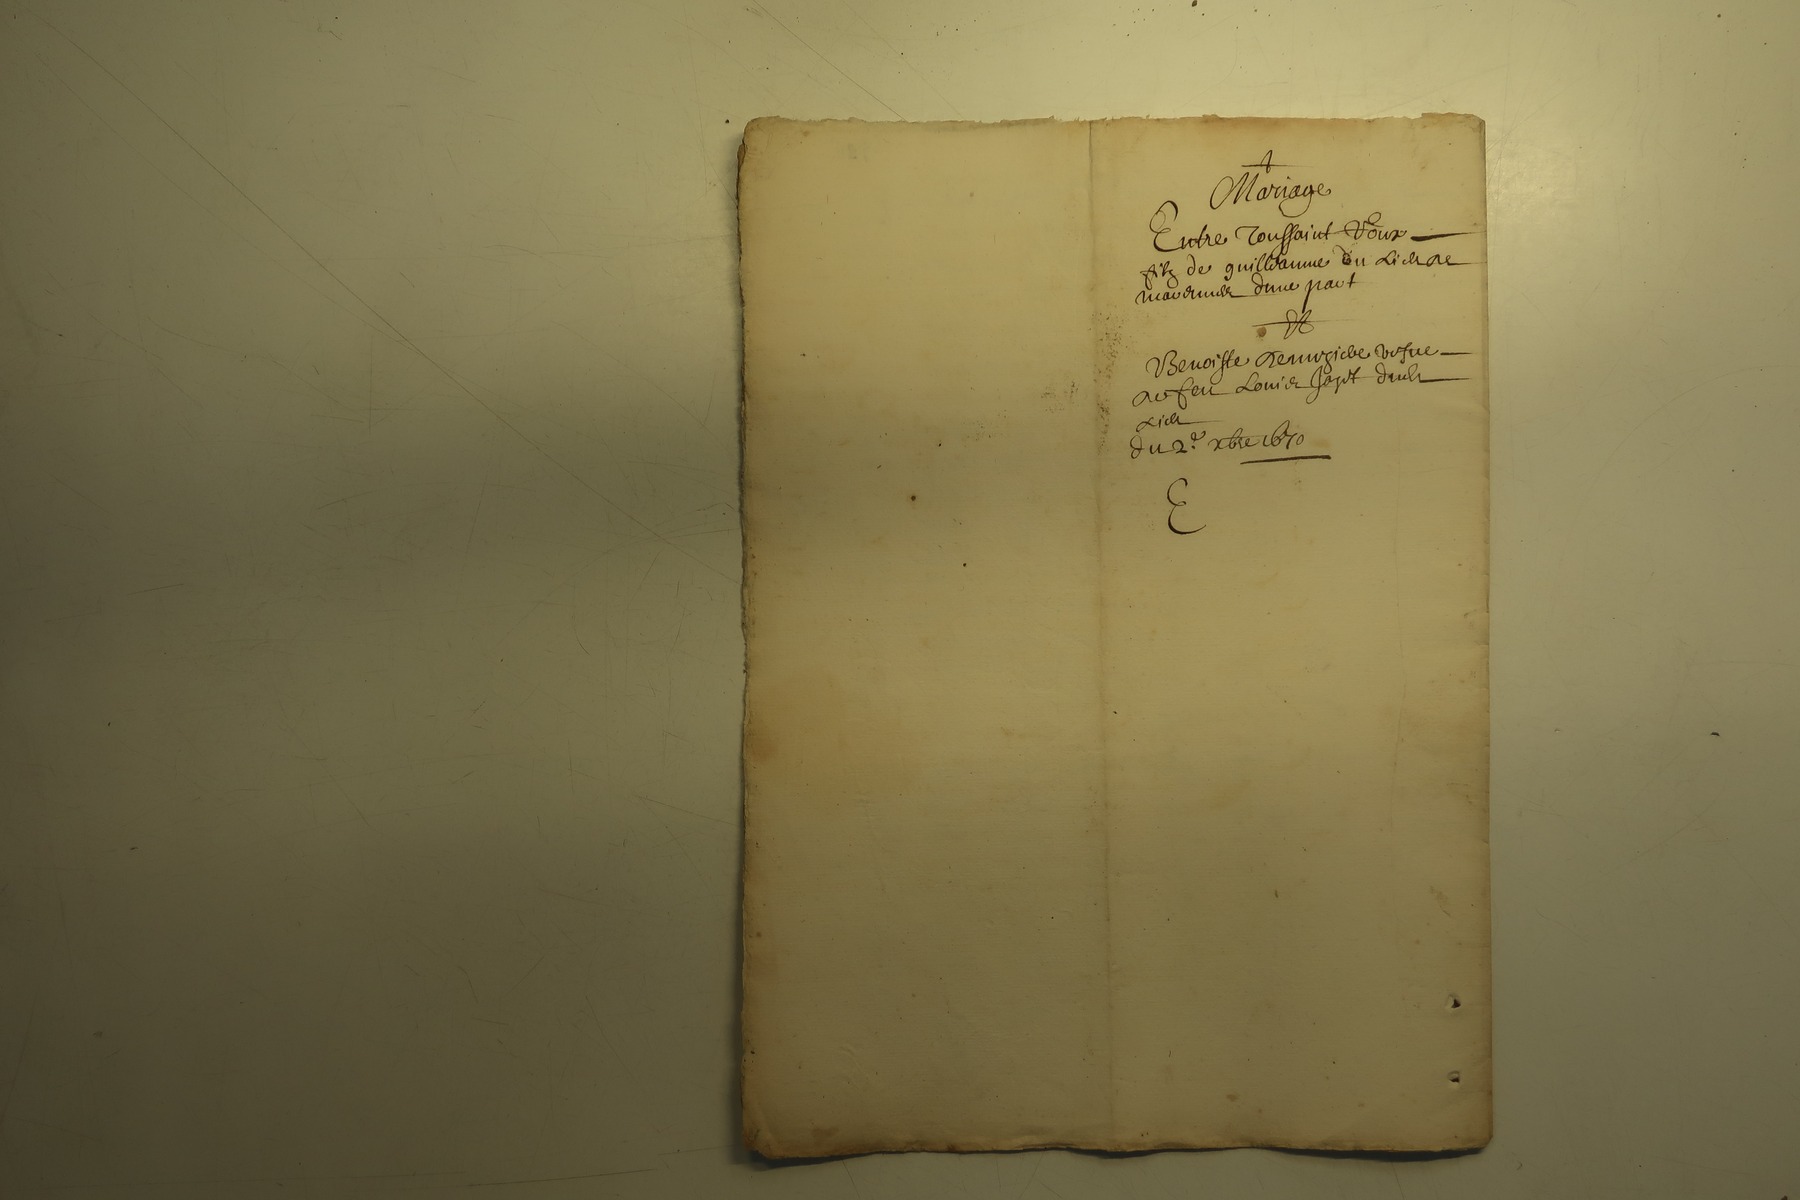 Mariage
Entre Toussaint Voux
filz de guillaume du Lieu de
d'une part
Et
Benoiste vefue
de feu Louis dud
Lieu
du 2.e xbre 1670
E